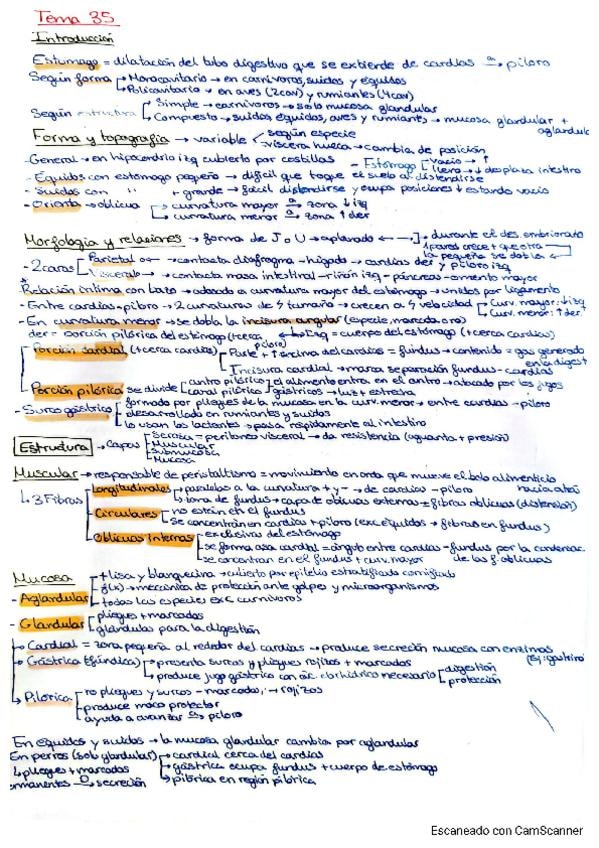 Tema 35
Introducción
Estómago = dilatación del tubo digestivo que se extiende de cardias a píloro
Según forma → Monocavitario → en carnívoros, suidos y équidos
→ Policavitario → en aves (2cav) y rumiantes (4cav)
Según estructura → Simple → carnívoros → solo mucosa glandular
→ Compuesto → suidos, équidos, aves y rumiantes → mucosa glandular + aglandular
Forma y topografía → variable < según especie
víscera hueca → cambia de posición
- General → en hipocondrio izq cubierto por costillas
- Estómago vacío → ↑
lleno → ↓ desplaza intestino
- Équidos con estómago pequeño → difícil que toque el suelo al distenderse
- Suidos con " + grande → fácil distenderse y ocupa posiciones ↓ estando vacío
- Orienta → oblicua curvatura mayor a zona ↓ izq
curvatura menor a zona ↑ der
Morfología y relaciones → forma de J o U → aplanado → durante el des. embrionario
1 pared crece + que otra
la pequeña se dobla
- 2 caras Parietal → contacta diafragma - hígado → cardias der y píloro izq
Visceral → contacta masa intestinal - riñón izq - páncreas - omento mayor
Relación íntima con bazo → adosado a curvatura mayor del estómago → unidos por ligamento
- Entre cardias - píloro → 2 curvaturas de ≠ tamaño → crecen a ≠ velocidad Curv. mayor: ↓ izq
Curv. menor: ↑ der
- En curvatura menor → se dobla la incisura angular (especie, marcada o no)
der = porción pilórica del estómago (+ cerca píloro) izq = cuerpo del estómago (+ cerca cardias)
Porción cardial (+ cerca cardias) Parte + ↑ encima del cardias = fundus → contenido = gas generado en la digest
Incisura cardial → marca separación fundus - cardias
Porción pilórica se divide antro pilórico: el alimento entra en el antro → atacado por los jugos gástricos
canal pilórico → luz + estrecha
- Surco gástrico formado por pliegues de la mucosa en la curv. menor → entre cardias - píloro
desarrollado en rumiantes y suidos
lo usan los lactantes → pasa rápidamente al intestino
Estructura → capas Serosa = peritoneo visceral → da resistencia (aguanta + presión)
Muscular
Submucosa
Mucosa
Muscular → responsable de peristaltismo = movimiento en onda que mueve el bolo alimenticio hacia atrás
↳ 3 Fibras Longitudinales paralelas a la curvatura + y - → de cardias - píloro
zona de fundus → capa de oblicuas externas = fibras oblicuas (distensión)
Circulares no están en el fundus
se concentran en cardias + píloro (exc équidos → fibras en fundus)
Oblicuas internas exclusivas del estómago
se forma asa cardial = ángulo entre cardias - fundus por la condensac. de las f. oblicuas
se concentran en el fundus + curv. mayor
Mucosa
- Aglandular + lisa y blanquecina → cubierto por epitelio estratificado cornificado
f(x) → mecánica de protección ante golpes y microorganismos
todas las especies exc carnívoros
- Glandular pliegues + marcados
glándulas para la digestión
→ Cardial = zona pequeña al rededor del cardias → produce secreción mucosa con enzimas
→ Gástrica (fúndica) presenta surcos y pliegues rojizos + marcados
produce jugo gástrico con ác. clorhídrico necesario digestión
protección
→ Pilórica no pliegues y surcos - marcados, - rojizos
produce moco protector
ayuda a avanzar a píloro
En équidos y suidos → la mucosa glandular cambia por aglandular
En perros (sob glandular) cardial cerca del cardias
↳ pliegues + marcados gástrica ocupa fundus + cuerpo de estómago
permanentes → secreción pilórica en región pilórica
Escaneado con CamScanner